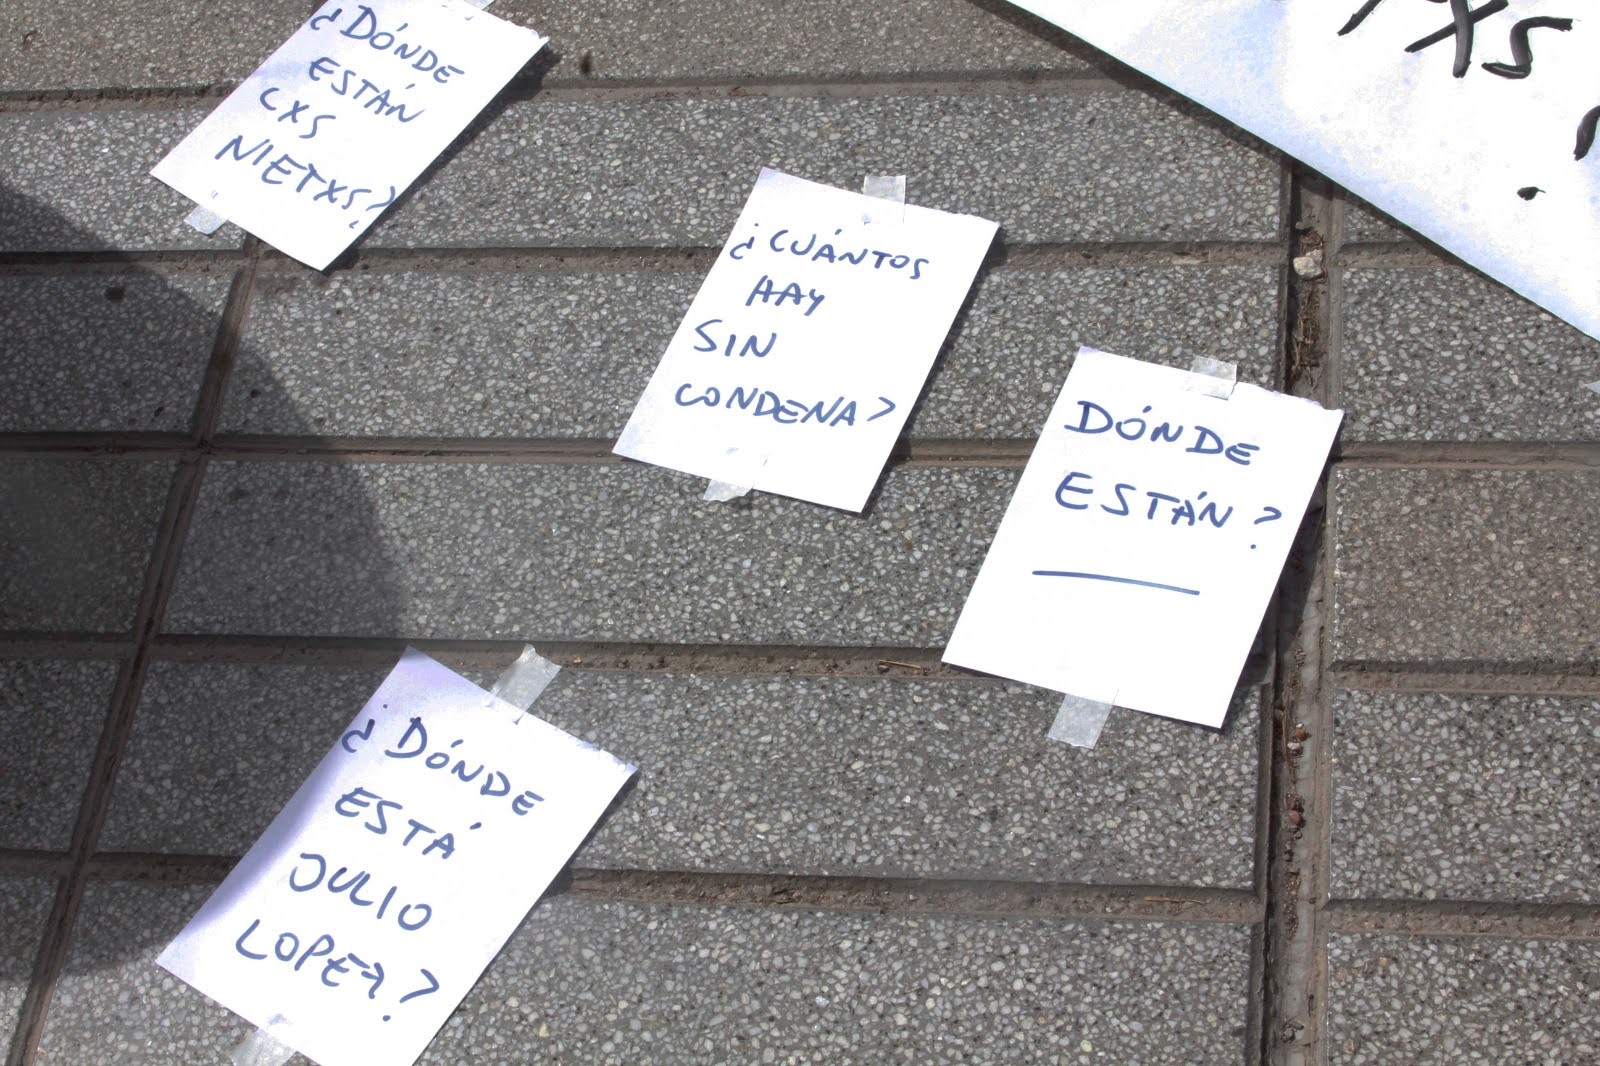 ¿DÓNDE
ESTÁN
LXS
NIETXS?
¿CUÁNTOS
HAY
SIN
CONDENA?
DÓNDE
ESTÁN?
¿DÓNDE
ESTÁ
JULIO
LOPEZ?